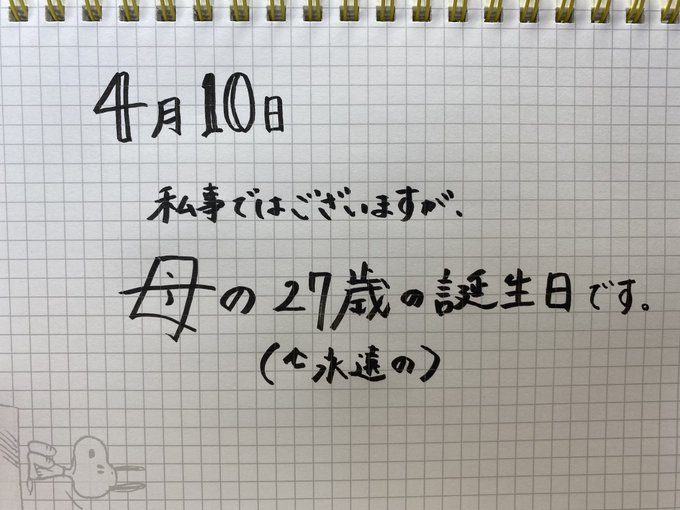 4月10日
私事ではございますが、
母の27歳の誕生日です。
(永遠の)